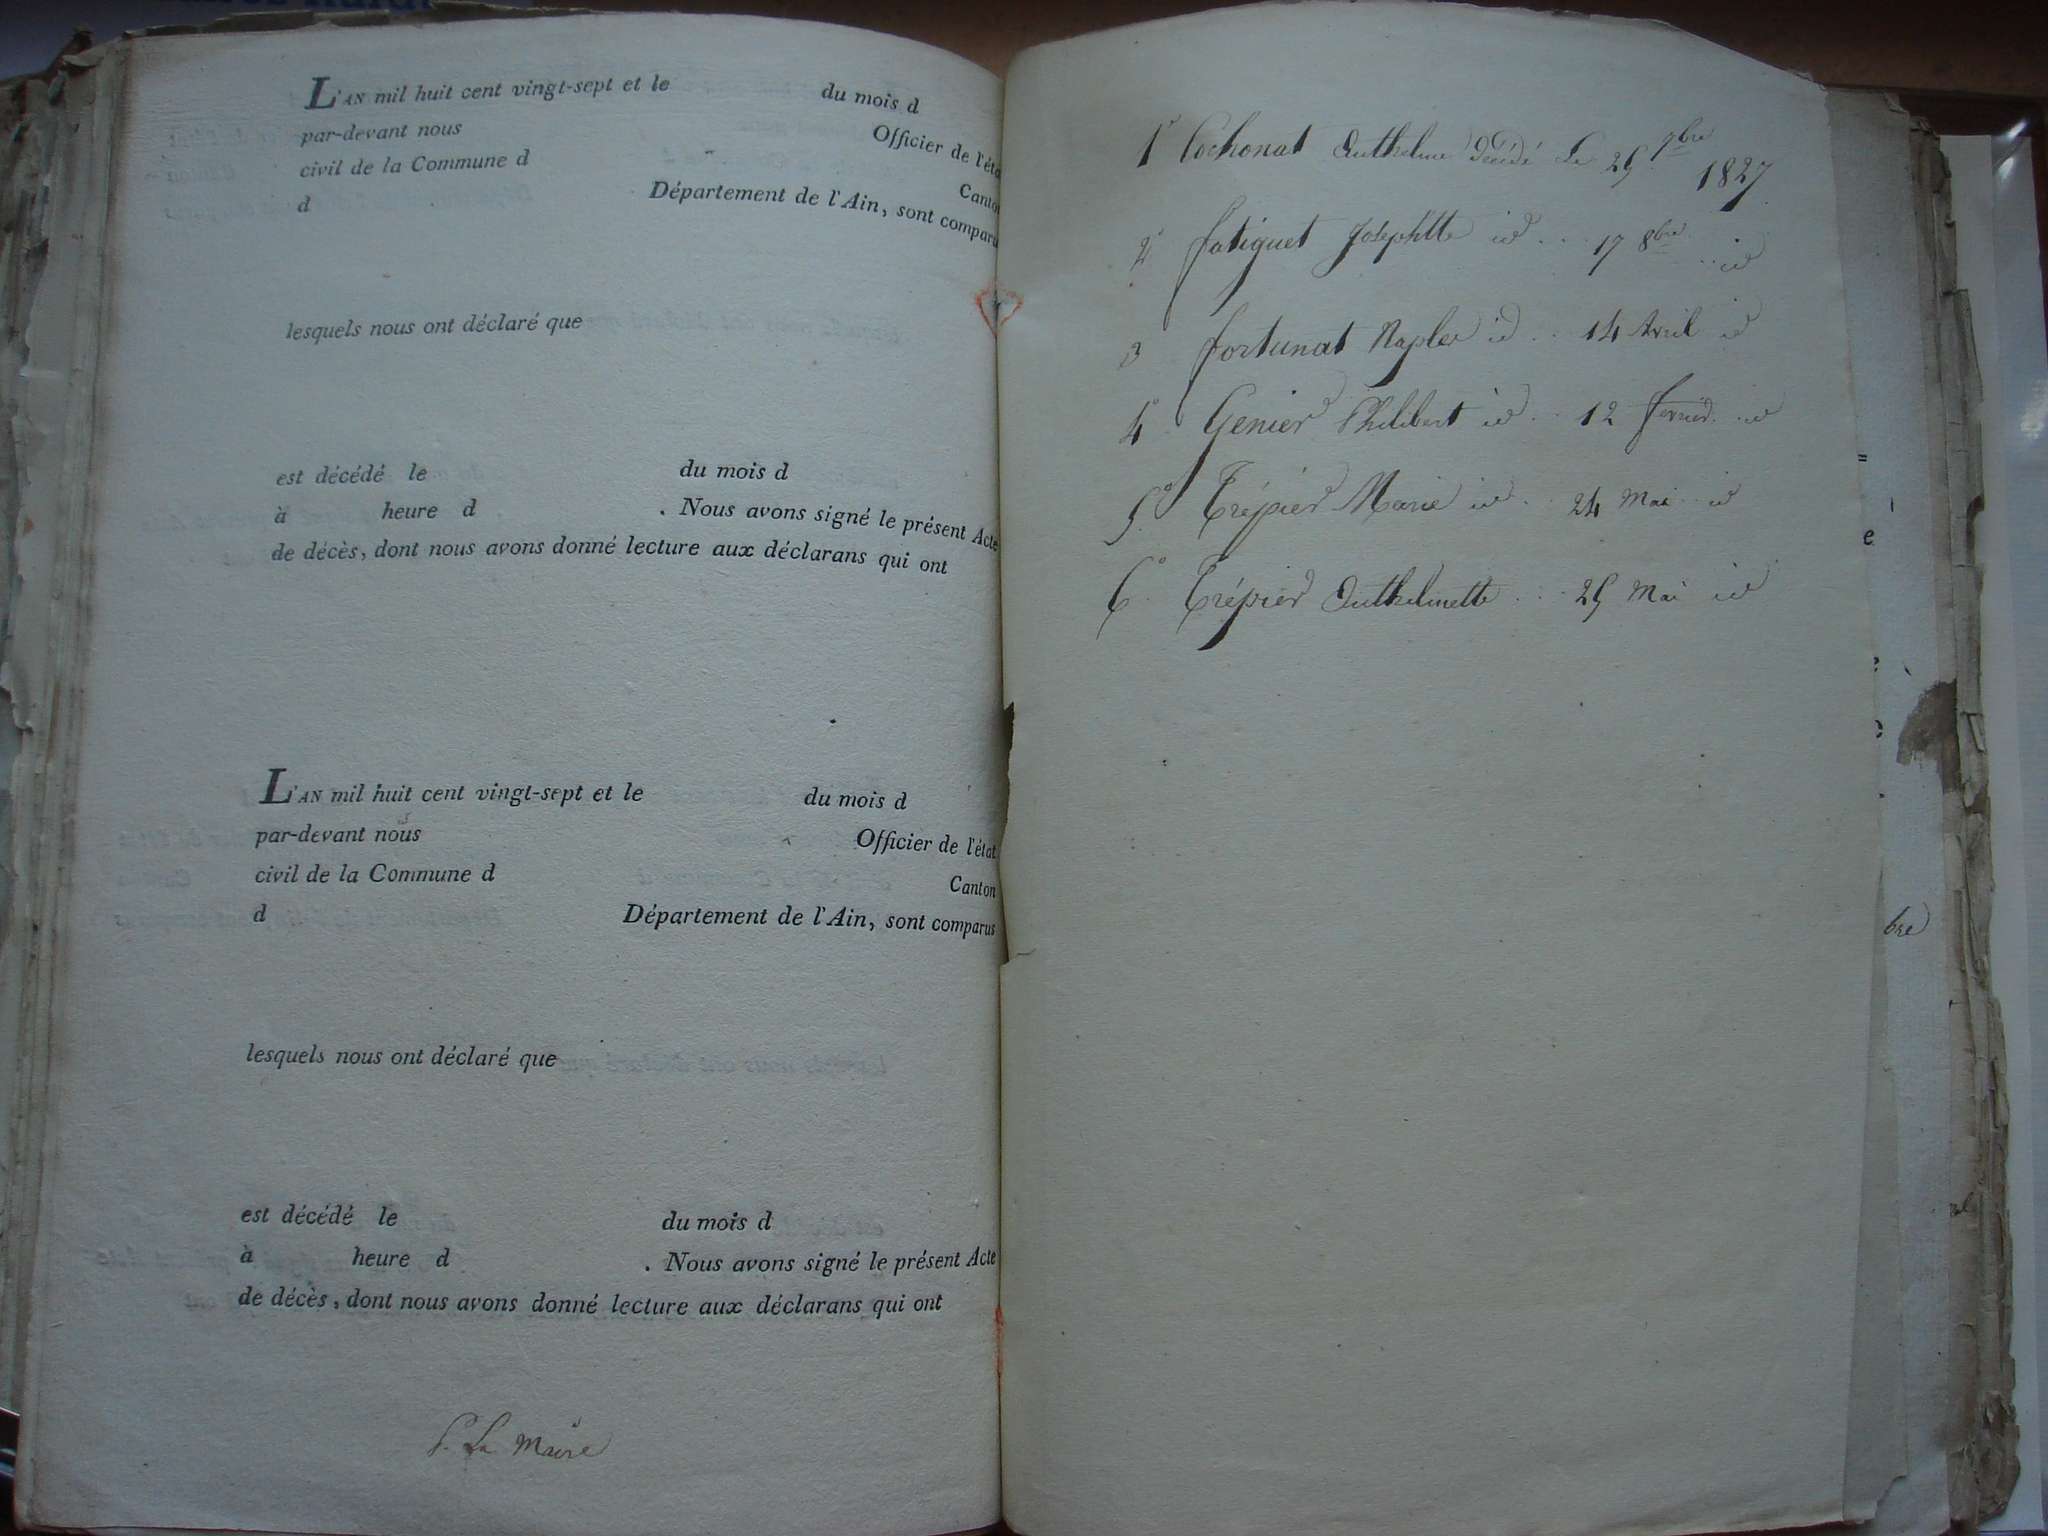 L'AN mil huit cent vingt-sept et le du mois d
par-devant nous Officier de l'éta
civil de la Commune d Canton
d Département de l'Ain, sont comparu
lesquels nous ont déclaré que
est décédé le du mois d
à heure d . Nous avons signé le présent Acte
de décès, dont nous avons donné lecture aux déclarans qui ont
L'AN mil huit cent vingt-sept et le du mois d
par-devant nous Officier de l'état
civil de la Commune d Canton
d Département de l'Ain, sont comparus
lesquels nous ont déclaré que
est décédé le du mois d
à heure d . Nous avons signé le présent Acte
de décès, dont nous avons donné lecture aux déclarans qui ont
Le Maire
1° Cochonat Anthelme Décédé Le 25 9bre 1827
2° fatiguet Josephtte id .. 17 8bre .. id
3 fortunat id .. 14 Avril id
4° Genier Philibert id .. 12 fevrier .. id
5° Trépier Marie id .. 24 Mai .. id
6° Trépier Anthelmette ... 25 Mai id
bre